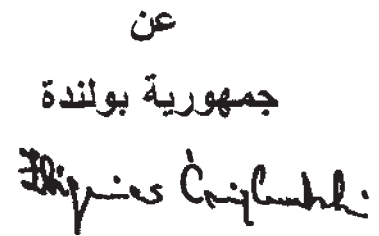 عن
جمهورية بولندة